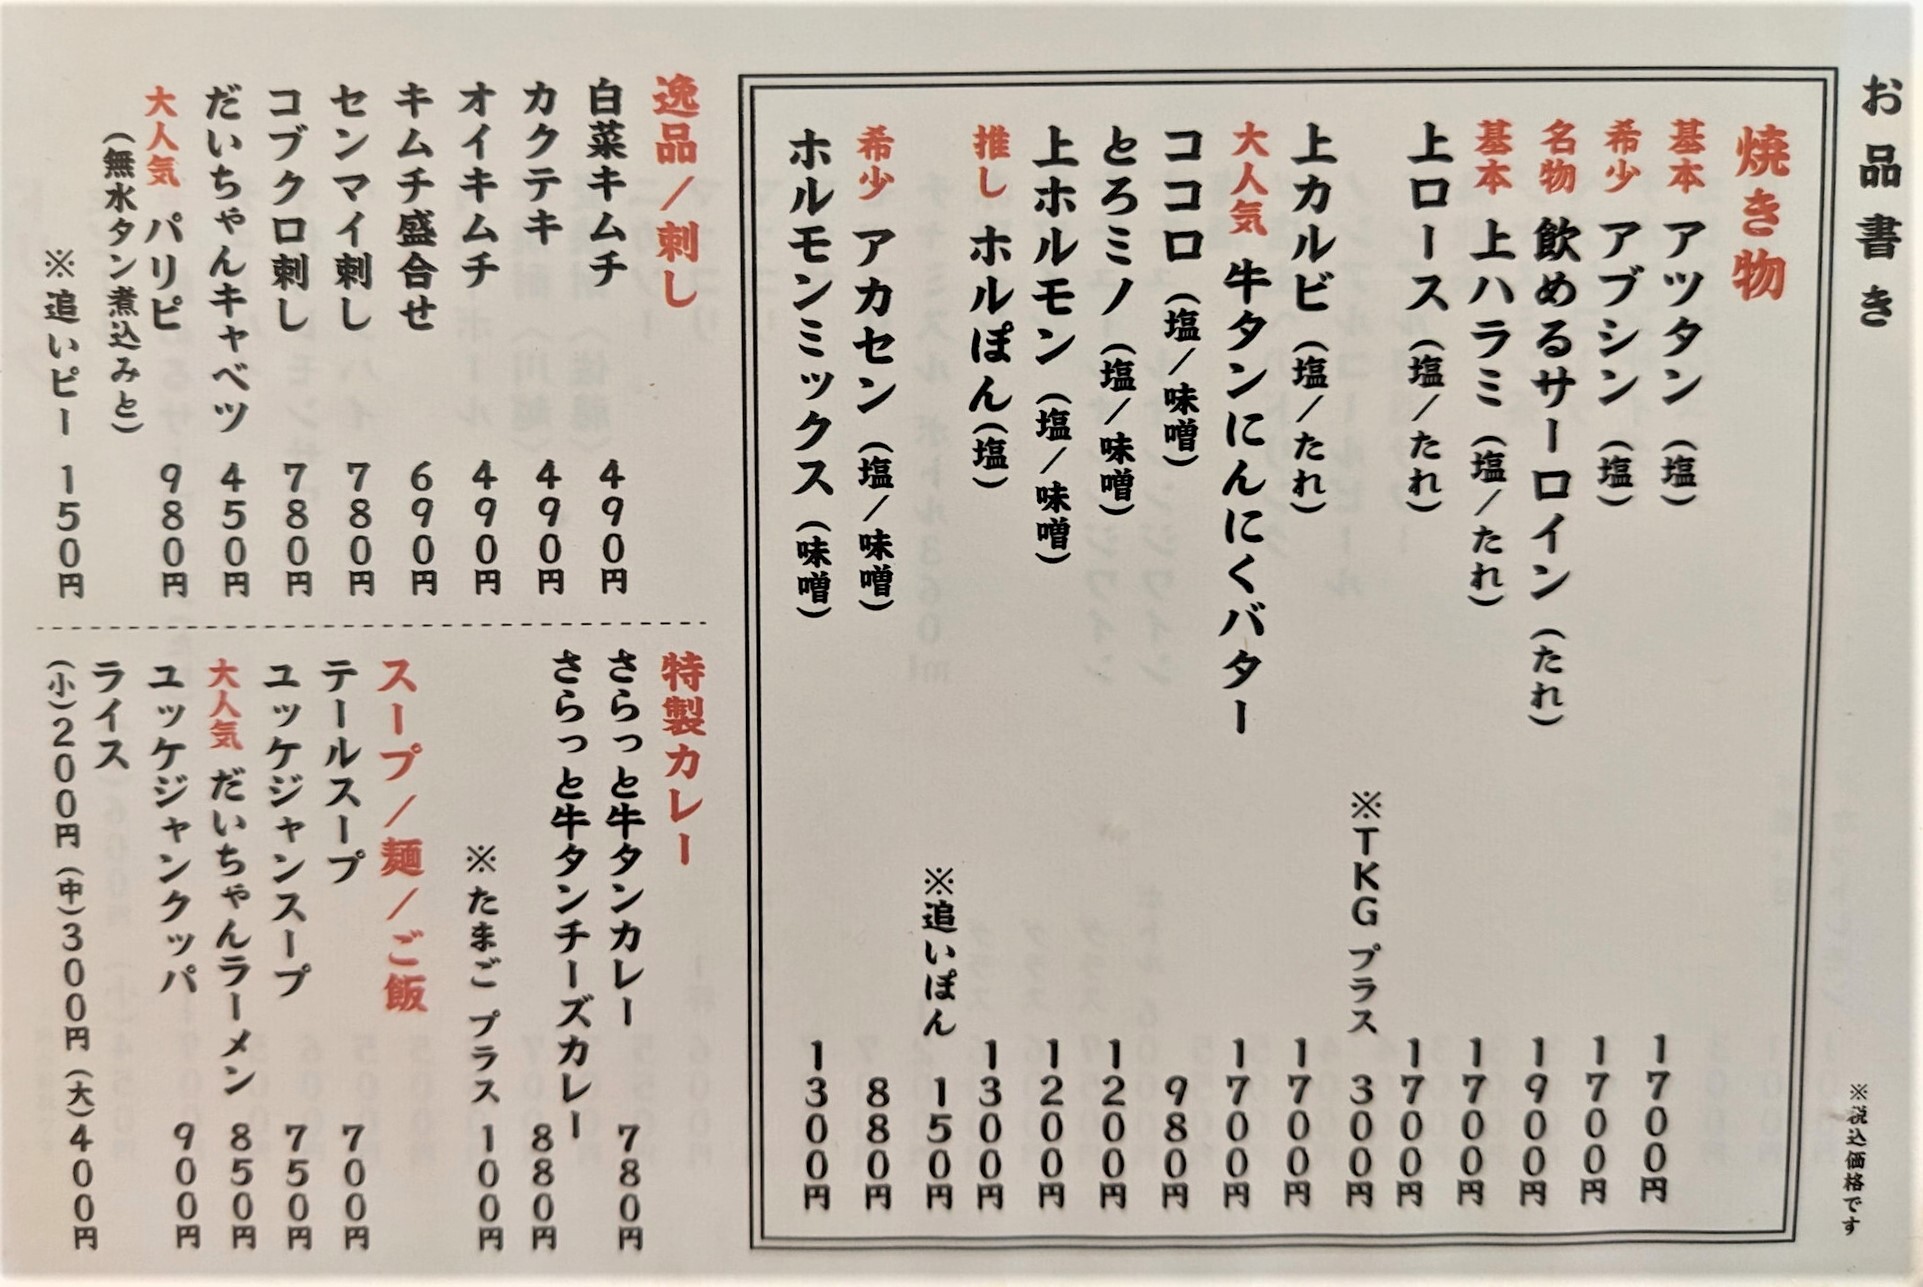 お品書き
※税込価格です
焼き物
基本 アツタン（塩） 1700円
希少 アブシン（塩） 1700円
名物 飲めるサーロイン（たれ） 1900円
基本 上ハラミ（塩／たれ） 1700円
上ロース（塩／たれ） 1700円
※TKG プラス 300円
上カルビ（塩／たれ） 1700円
大人気 牛タンにんにくバター 1700円
ココロ（塩／味噌） 980円
とろミノ（塩／味噌） 1200円
上ホルモン（塩／味噌） 1200円
推し ホルぽん（塩） 1300円
※追いぽん 150円
希少 アカセン（塩／味噌） 880円
ホルモンミックス（味噌） 1300円
逸品／刺し
白菜キムチ 490円
カクテキ 490円
オイキムチ 490円
キムチ盛合せ 690円
センマイ刺し 780円
コブクロ刺し 780円
だいちゃんキャベツ 450円
大人気 パリピ 980円
（無水タン煮込みと）
※追いピー 150円
特製カレー
さらっと牛タンカレー 780円
さらっと牛タンチーズカレー 880円
※たまご プラス 100円
スープ／麺／ご飯
テールスープ 700円
ユッケジャンスープ 750円
大人気 だいちゃんラーメン 850円
ユッケジャンクッパ 900円
ライス
（小）200円（中）300円（大）400円